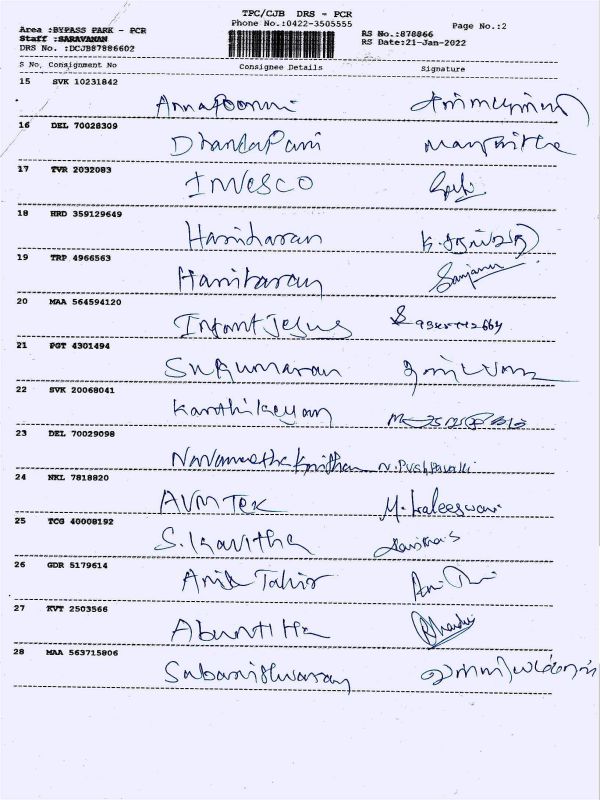 TPC/CJB DRS - PCR
Phone No.:0422-3505555
Page No.:2
Area :BYPASS PARK - PCR
Staff :SARAVANAN
DRS No. :DCJB87886602
RS No.:878866
RS Date:21-Jan-2022
S No. Consignment No Consignee Details Signature
15 SVK 10231842
Annapoorni
16 DEL 70028309
DhandaPani
17 TVR 2032083
INVESCO
18 HRD 359129649
Hariharan
19 TRP 4966563
Hariharan Sanjana
20 MAA 564594120
Infant Jesus
21 PGT 4301494
Sukumaran
22 SVK 20068041
Karthikeyan
23 DEL 70029098
Navaneetha Krithan N. Pushpavalli
24 NKL 7818820
AVM TEX M. Kaleeswari
25 TCG 40008192
S. Kavitha
26 GDR 5179614
Anik Tahir
27 KVT 2503566
28 MAA 563715806
Sabarishwaran